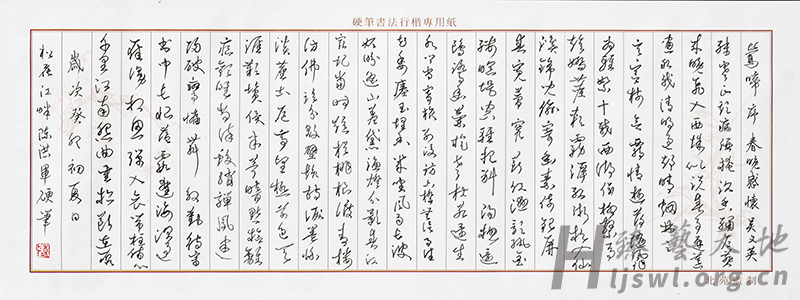 硬筆書法行楷專用紙
鶯啼序 春晚感懷 吳文英
殘寒正欺病酒掩沉香繡户燕
來晚飛入西城似說春事遲暮
畫船載清明過卻晴烟冉冉
吳宮樹念羈情遊蕩隨風化
為輕絮十載西湖傍柳繫馬
趁嬌塵軟霧溯紅漸招入仙
溪錦兒偷寄幽素倚銀屏
春寬夢窄斷紅濕歌紈金
縷暝堤空輕把斜陽總還
鷗鷺幽蘭旋老杜若還生
水鄉尚寄旅別後訪六橋無信事往
花委瘞玉埋香幾番風雨長波
妒盼遙山羞黛漁燈分影春江
宿記當時短楫桃根渡青樓
仿佛臨分敗壁題詩淚墨慘
淡塵土危亭望極草色天
涯歎鬢侵半苧暗點檢離
痕歡唾尚染鮫綃嚲鳳迷
歸破鸞慵舞殷勤待寫
書中長恨藍霞遼海沉過
雁漫相思彈入哀箏柱傷心
千里江南怨曲重招斷魂在否
歲次癸卯初夏日
松花江畔陳洪硬筆
藝天地
Hljswl.org.cn